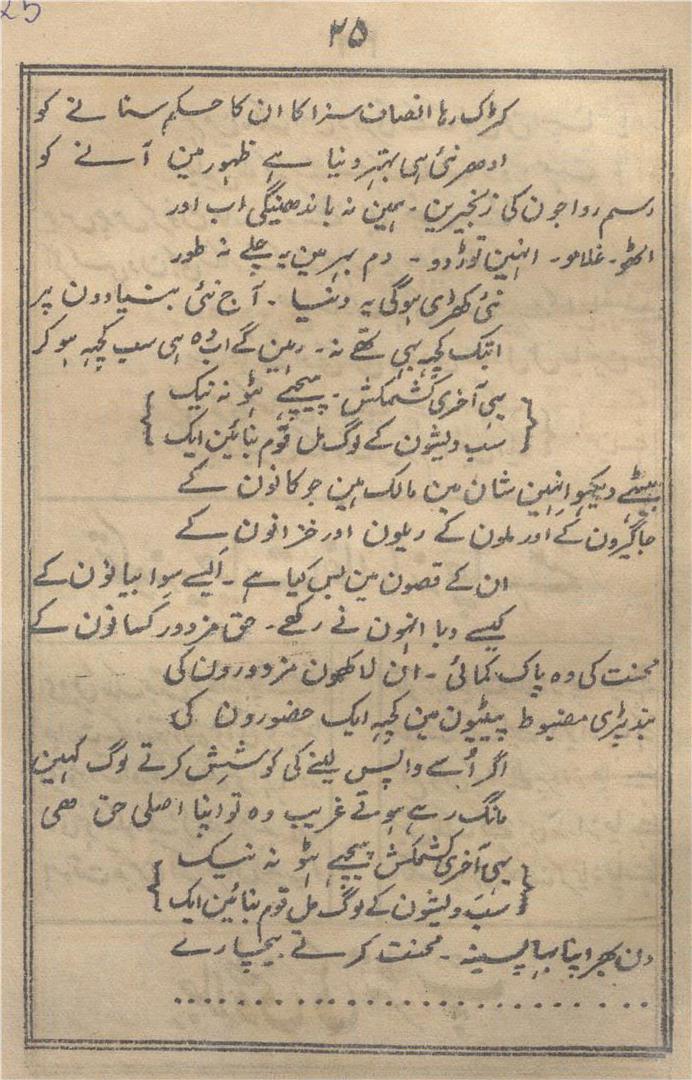 25
۲۵
کڑک رہا انصاف سزا کا ان کا حکم سنانے کو
ادھر نئی ہی بہتر دنیا ہے ظہور مین آنے کو
رسم رواجون کی زنجیرین۔ ہمین نہ باندھینگی اب اور
اٹھو۔ غلامو۔ انہین توڑ دو۔ دم بہر مین یہ چلے نہ طور
نئی کھڑی ہوگی یہ دنیا۔ آج نئی بنیادون پر
ابتک کچہہ ہی تھے نہ۔ رہین گے اب وہ ہی سب کچہہ ہو کر
یہی آخری کشمکش۔ پیچہے ہٹو نہ نیک
سب دیشون کے لوگ مل قوم بنائین ایک
بیٹہے دیکہو انہین شان مین مالک ہین جو کانون کے
جاگیرون کے اور ملون کے ریلون اور خزانون کے
ان کے قصون مین بس کیا ہے۔ ایسے سوا بیانون کے
کیسے دبا انہون نے رکھے۔ حق مزدور کسانون کے
محنت کی وہ پاک کمائی۔ ان لاکھون مزدورون کی
بند پڑی مضبوط پیٹیون مین کچہہ ایک حضورون کی
اگر اُسے واپس لینے کی کوشش کرتے لوگ کہین
مانگ رہے ہوتے غریب وہ تو اپنا اصلی حق ھی
یہی آخری کشمکش پیچہے ہٹو نہ نیک
سب دیشون کے لوگ مل قوم بنائین ایک
دن بھر اپنا بہا پسینہ۔ محنت کرتے بیچارے